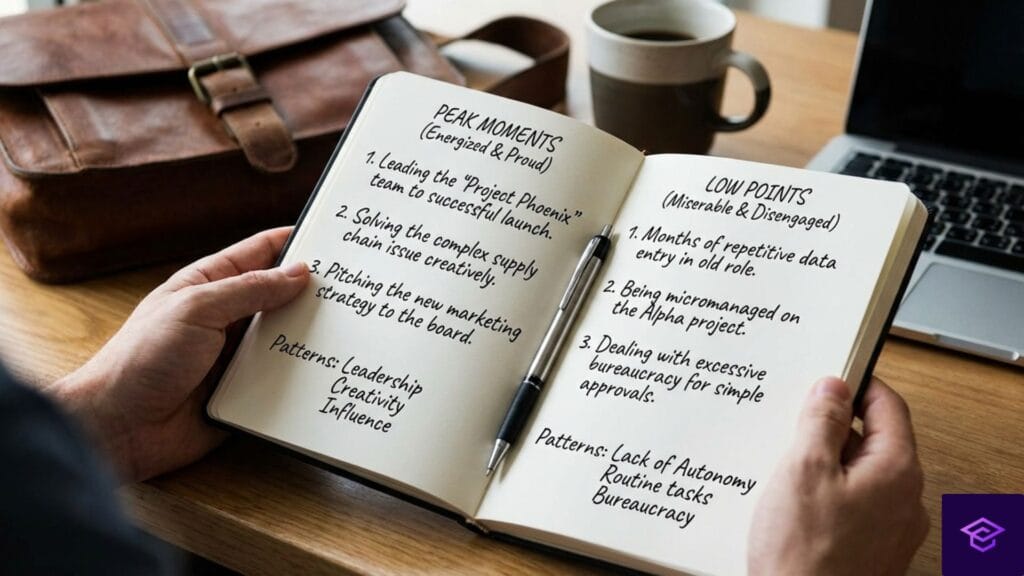 PEAK MOMENTS
(Energized & Proud)
1. Leading the "Project Phoenix"
team to successful launch.
2. Solving the complex supply
chain issue creatively.
3. Pitching the new marketing
strategy to the board.
Patterns: Leadership
Creativity
Influence
LOW POINTS
(Miserable & Disengaged)
1. Months of repetitive data
entry in old role.
2. Being micromanaged on
the Alpha project.
3. Dealing with excessive
bureaucracy for simple
approvals.
Patterns: Lack of Autonomy
Routine tasks
Bureaucracy